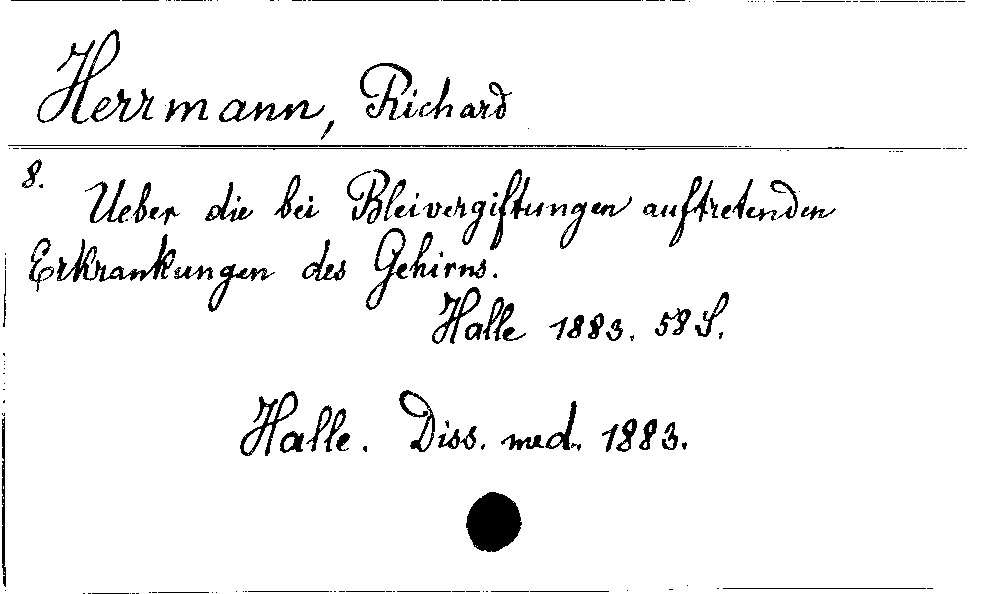 Herrmann, Richard
8.
Ueber die bei Bleivergiftungen auftretenden
Erkrankungen des Gehirns.
Halle 1883. 58 S.
Halle. Diss. med. 1883.